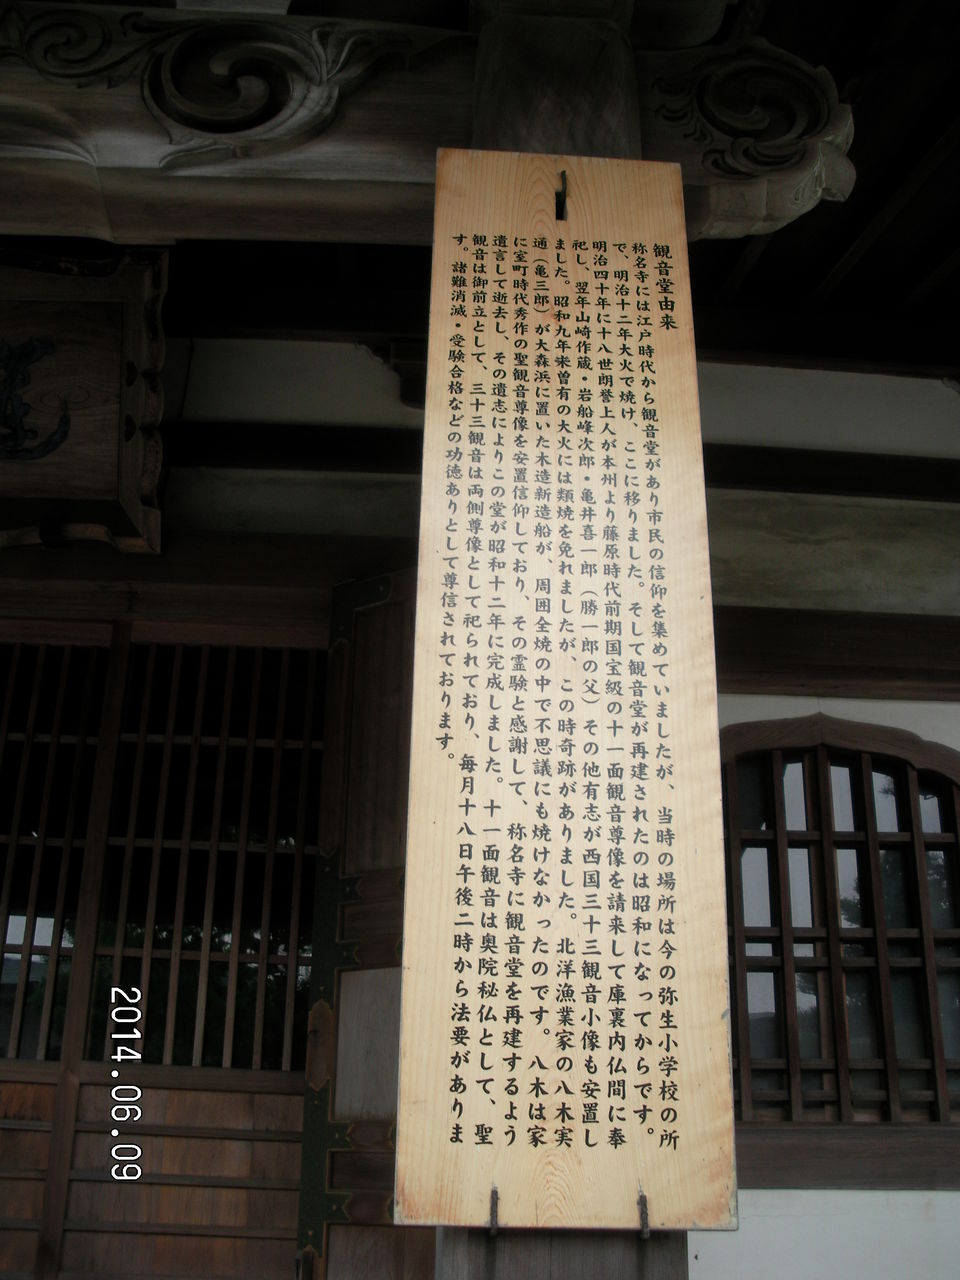 観音堂由来
称名寺には江戸時代から観音堂があり市民の信仰を集めていましたが、当時の場所は今の弥生小学校の所
で、明治十二年大火で焼け、ここに移りました。そして観音堂が再建されたのは昭和になってからです。
明治四十年に十八世朗誉上人が本州より藤原時代前期国宝級の十一面観音尊像を請来して庫裏内仏間に奉
祀し、翌年山崎作蔵・岩船峰次郎・亀井喜一郎（勝一郎の父）その他有志が西国三十三観音小像も安置し
ました。昭和九年未曽有の大火には類焼を免れましたが、この時奇跡がありました。北洋漁業家の八木実
通（亀三郎）が大森浜に置いた木造新造船が、周囲全焼の中で不思議にも焼けなかったのです。八木は家
に室町時代秀作の聖観音尊像を安置信仰しており、その霊験と感謝して、称名寺に観音堂を再建するよう
遺言して逝去し、その遺志によりこの堂が昭和十二年に完成しました。十一面観音は奥院秘仏として、聖
観音は御前立として、三十三観音は両側尊像として祀られており、毎月十八日午後二時から法要がありま
す。諸難消滅・受験合格などの功徳ありとして尊信されております。
2014.06.09